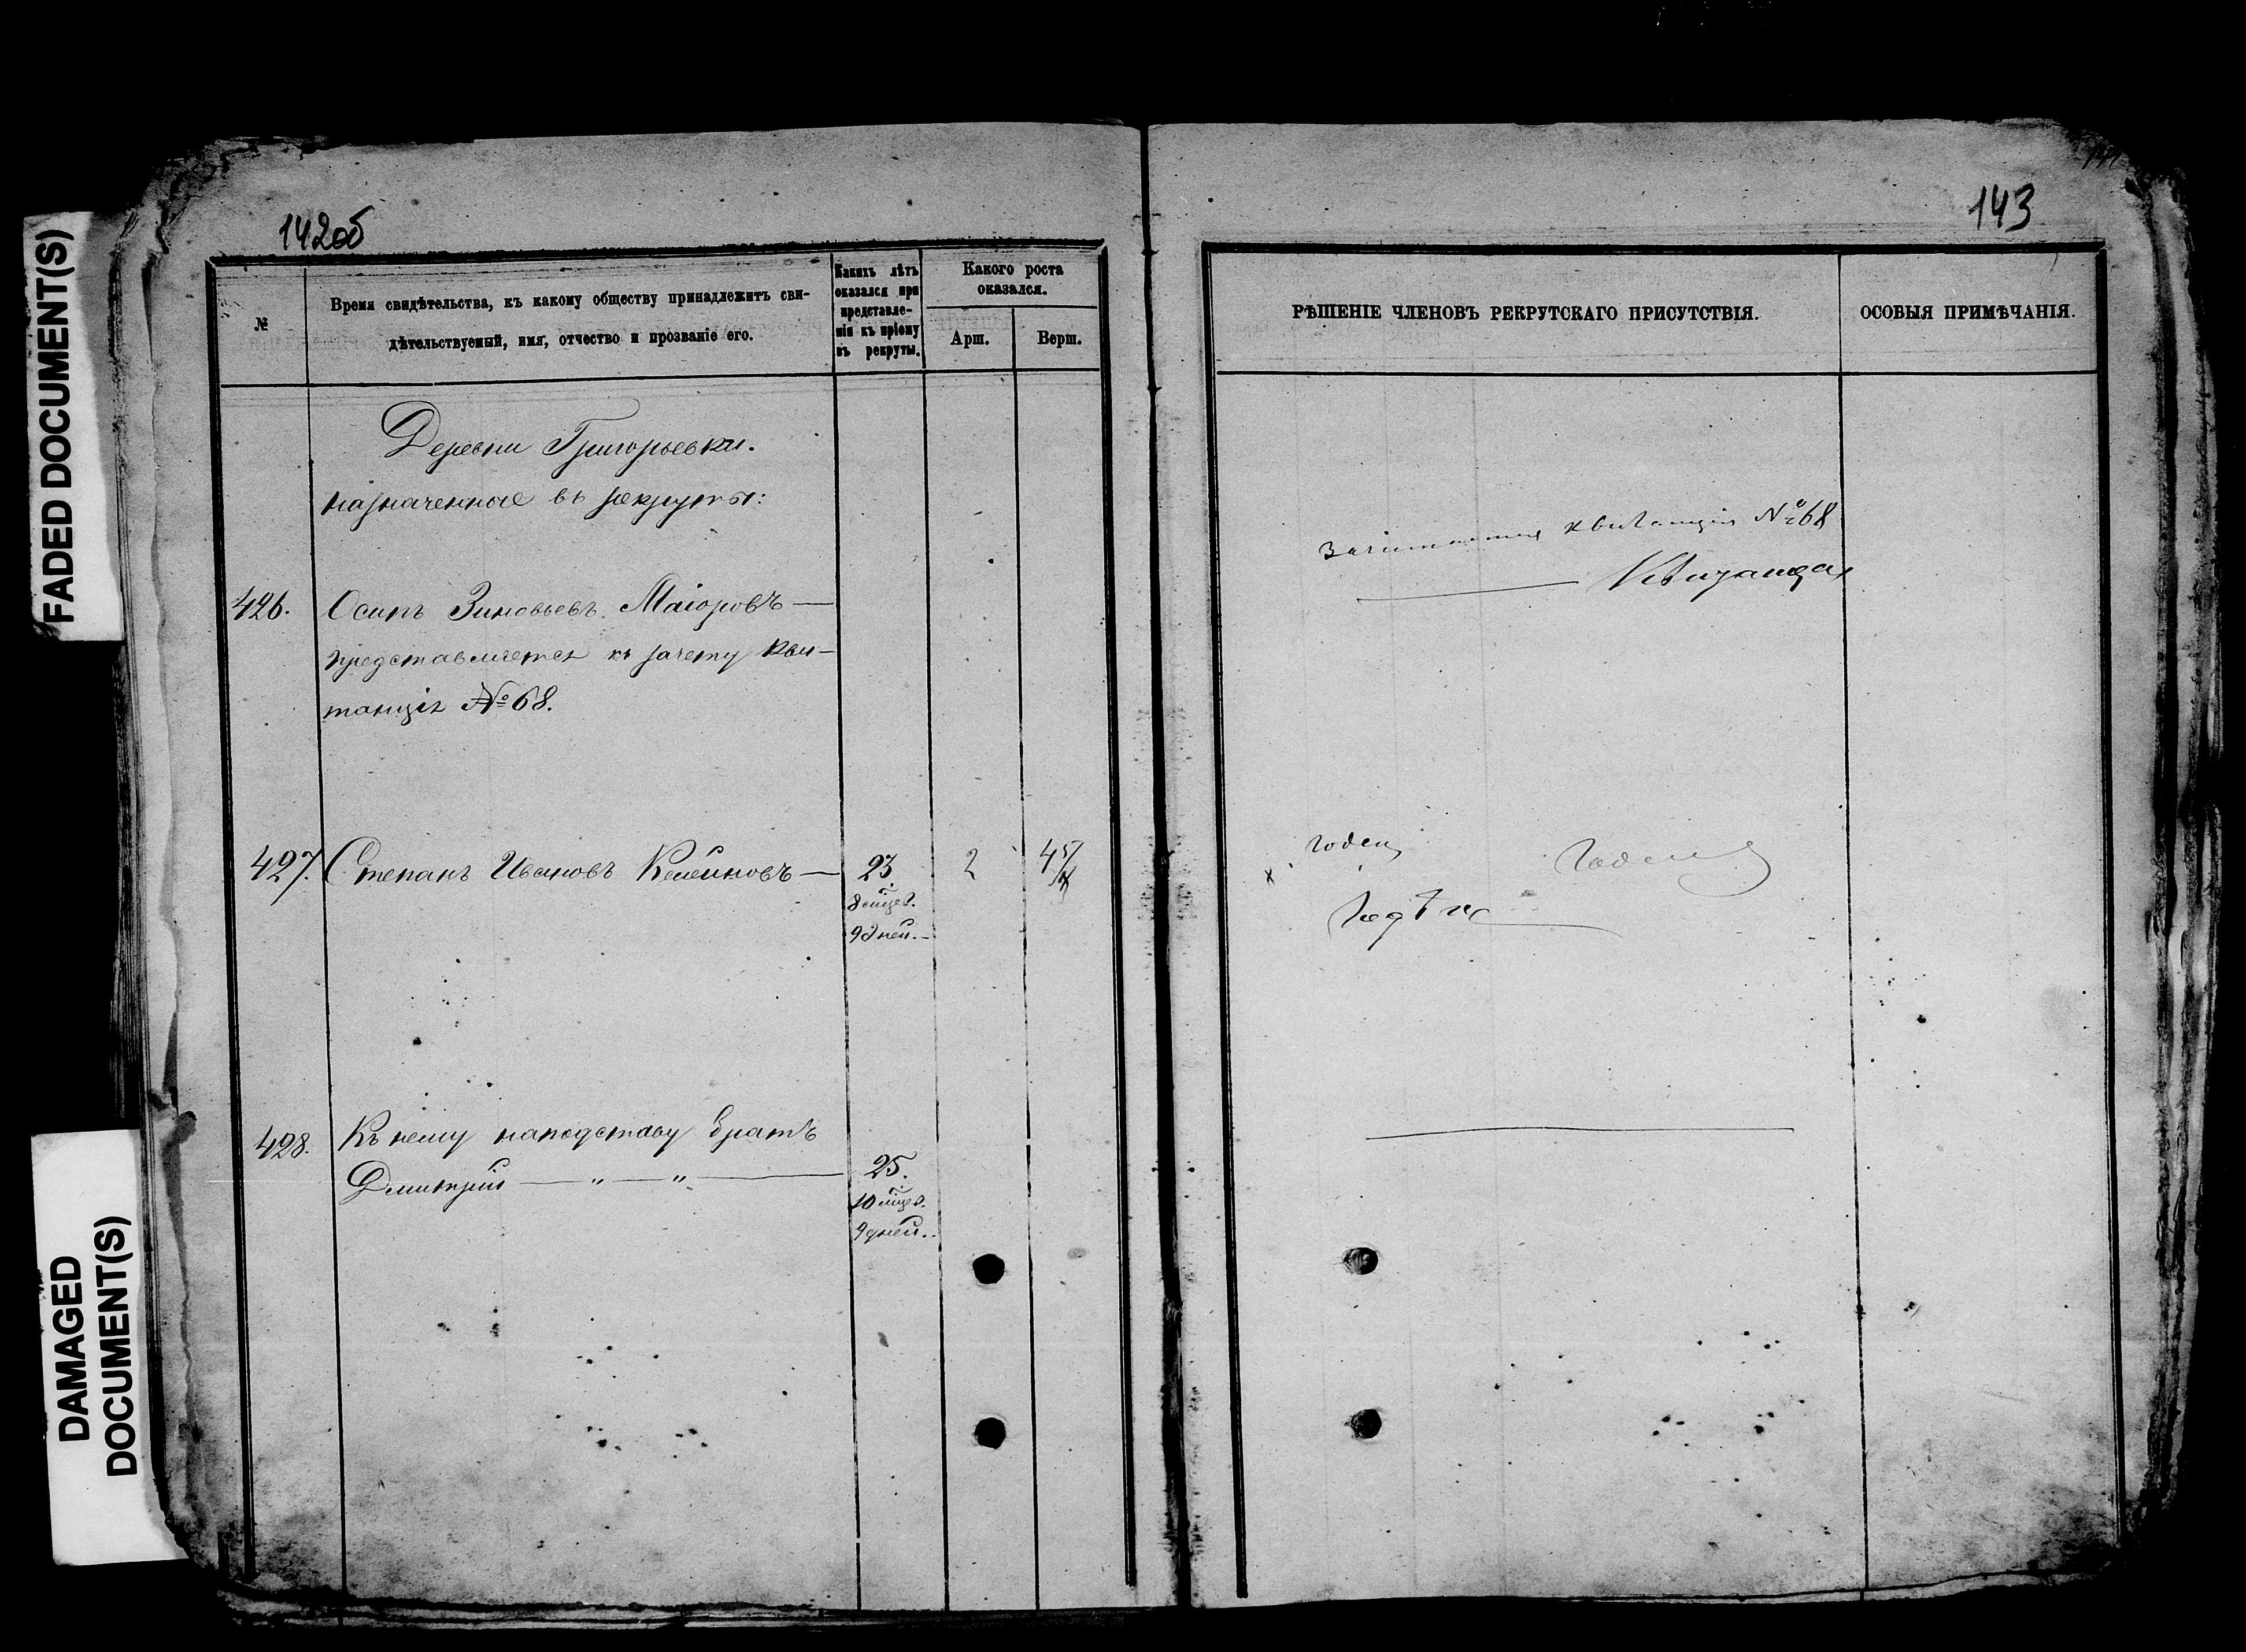 FADED DOCUMENT(S)
DAMAGED
DOCUMENT(S)
142об
№
Время свидѣтельства, къ какому обществу принадлежитъ сви-
дѣтельствуемый, имя, отчество и прозваніе его.
Какихъ лѣтъ
оказался при
представле-
ніи къ пріему
въ рекруты.
Какого роста
оказался.
Арш.
Верш.
Деревни Григорьевки.
назначенные въ рекруты:
426.
Осипъ Зиновьевъ Маіоровъ —
представляется къ зачету кви-
танція № 68.
427.
Степанъ Ивановъ —
23
8 мцев.
9 дней. —
2
428.
Къ нему наподставу братъ
Дмитрій — „ — „ —
25.
10 мцев.
9 дней..
143
РѢШЕНІЕ ЧЛЕНОВЪ РЕКРУТСКАГО ПРИСУТСТВІЯ.
ОСОБЫЯ ПРИМѢЧАНІЯ.
квитанція № 68
годен